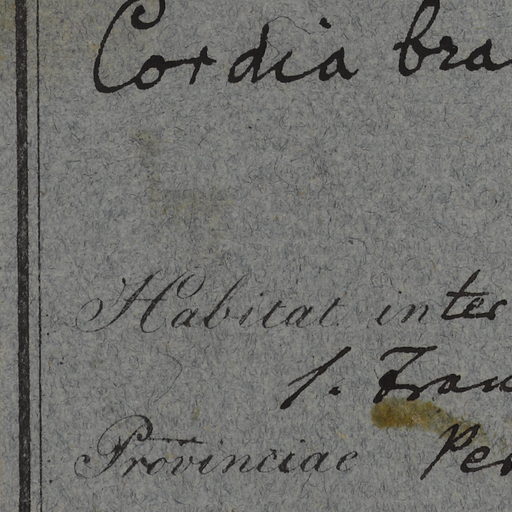 Cordia bra
Habitat inter
Provinciae Per